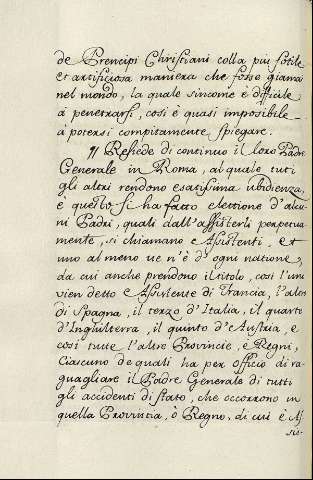 de Prencipi Christiani colla più sotile
et artificiosa maniera che fosse giamai
nel mondo, la quale sincome è difficile
à penetrarsi, così è quasi imposibile
à potersi compitamente spiegare.
¶ Resiede di continuo il loro Padre
Generale in Roma, al quale tuti
gli altri rendono esatisima ubidienza,
e questo si ha fatto elettione d'alcu-
ni Padri, quali dall'assisterli perpetua
mente, si chiamano Assistenti, et
uno al meno ve n'è d'ogni natione,
da cui anche prendono il titolo, così l'uno
vien detto Assistente di Francia, l'altro
di Spagna, il terzo d'Italia, il quarto
d'Inghilterra, il quinto d'Austria, e
così tutte l'altre Provincie, e Regni,
Ciascuno de quali ha per officio di ra-
guagliare il Padre Generale di tutti
gli accidenti di stato, che occorrono in
quella Provintia, ò Regno, di cui è As
sis-